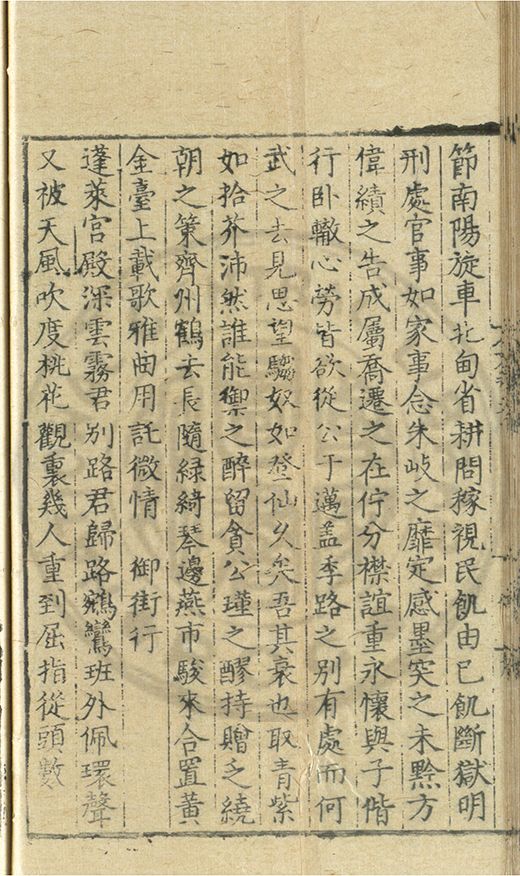 節南陽旋車北甸省耕問稼視民飢由已飢斷獄明
刑處官事如家事念朱岐之靡定感墨突之未黔方
偉績之告成屬喬遷之在佇分襟誼重永懷與子偕
行臥轍心勞皆欲從公于邁盖李路之別有處而何
武之去見思望驪奴如登仙久矣吾其衰也取青紫
如拾芥沛然誰能禦之醉留貪公瑾之醪持贈乏繞
朝之策齊州鶴去長隨綠綺琴邊燕市駿來合置黃
金臺上載歌雅曲用託微情　御街行
蓬萊宮殿深雲霧君別路君歸路鵷鸞班外佩環聲
又被天風吹度桃花觀裏幾人重到屈指從頭數